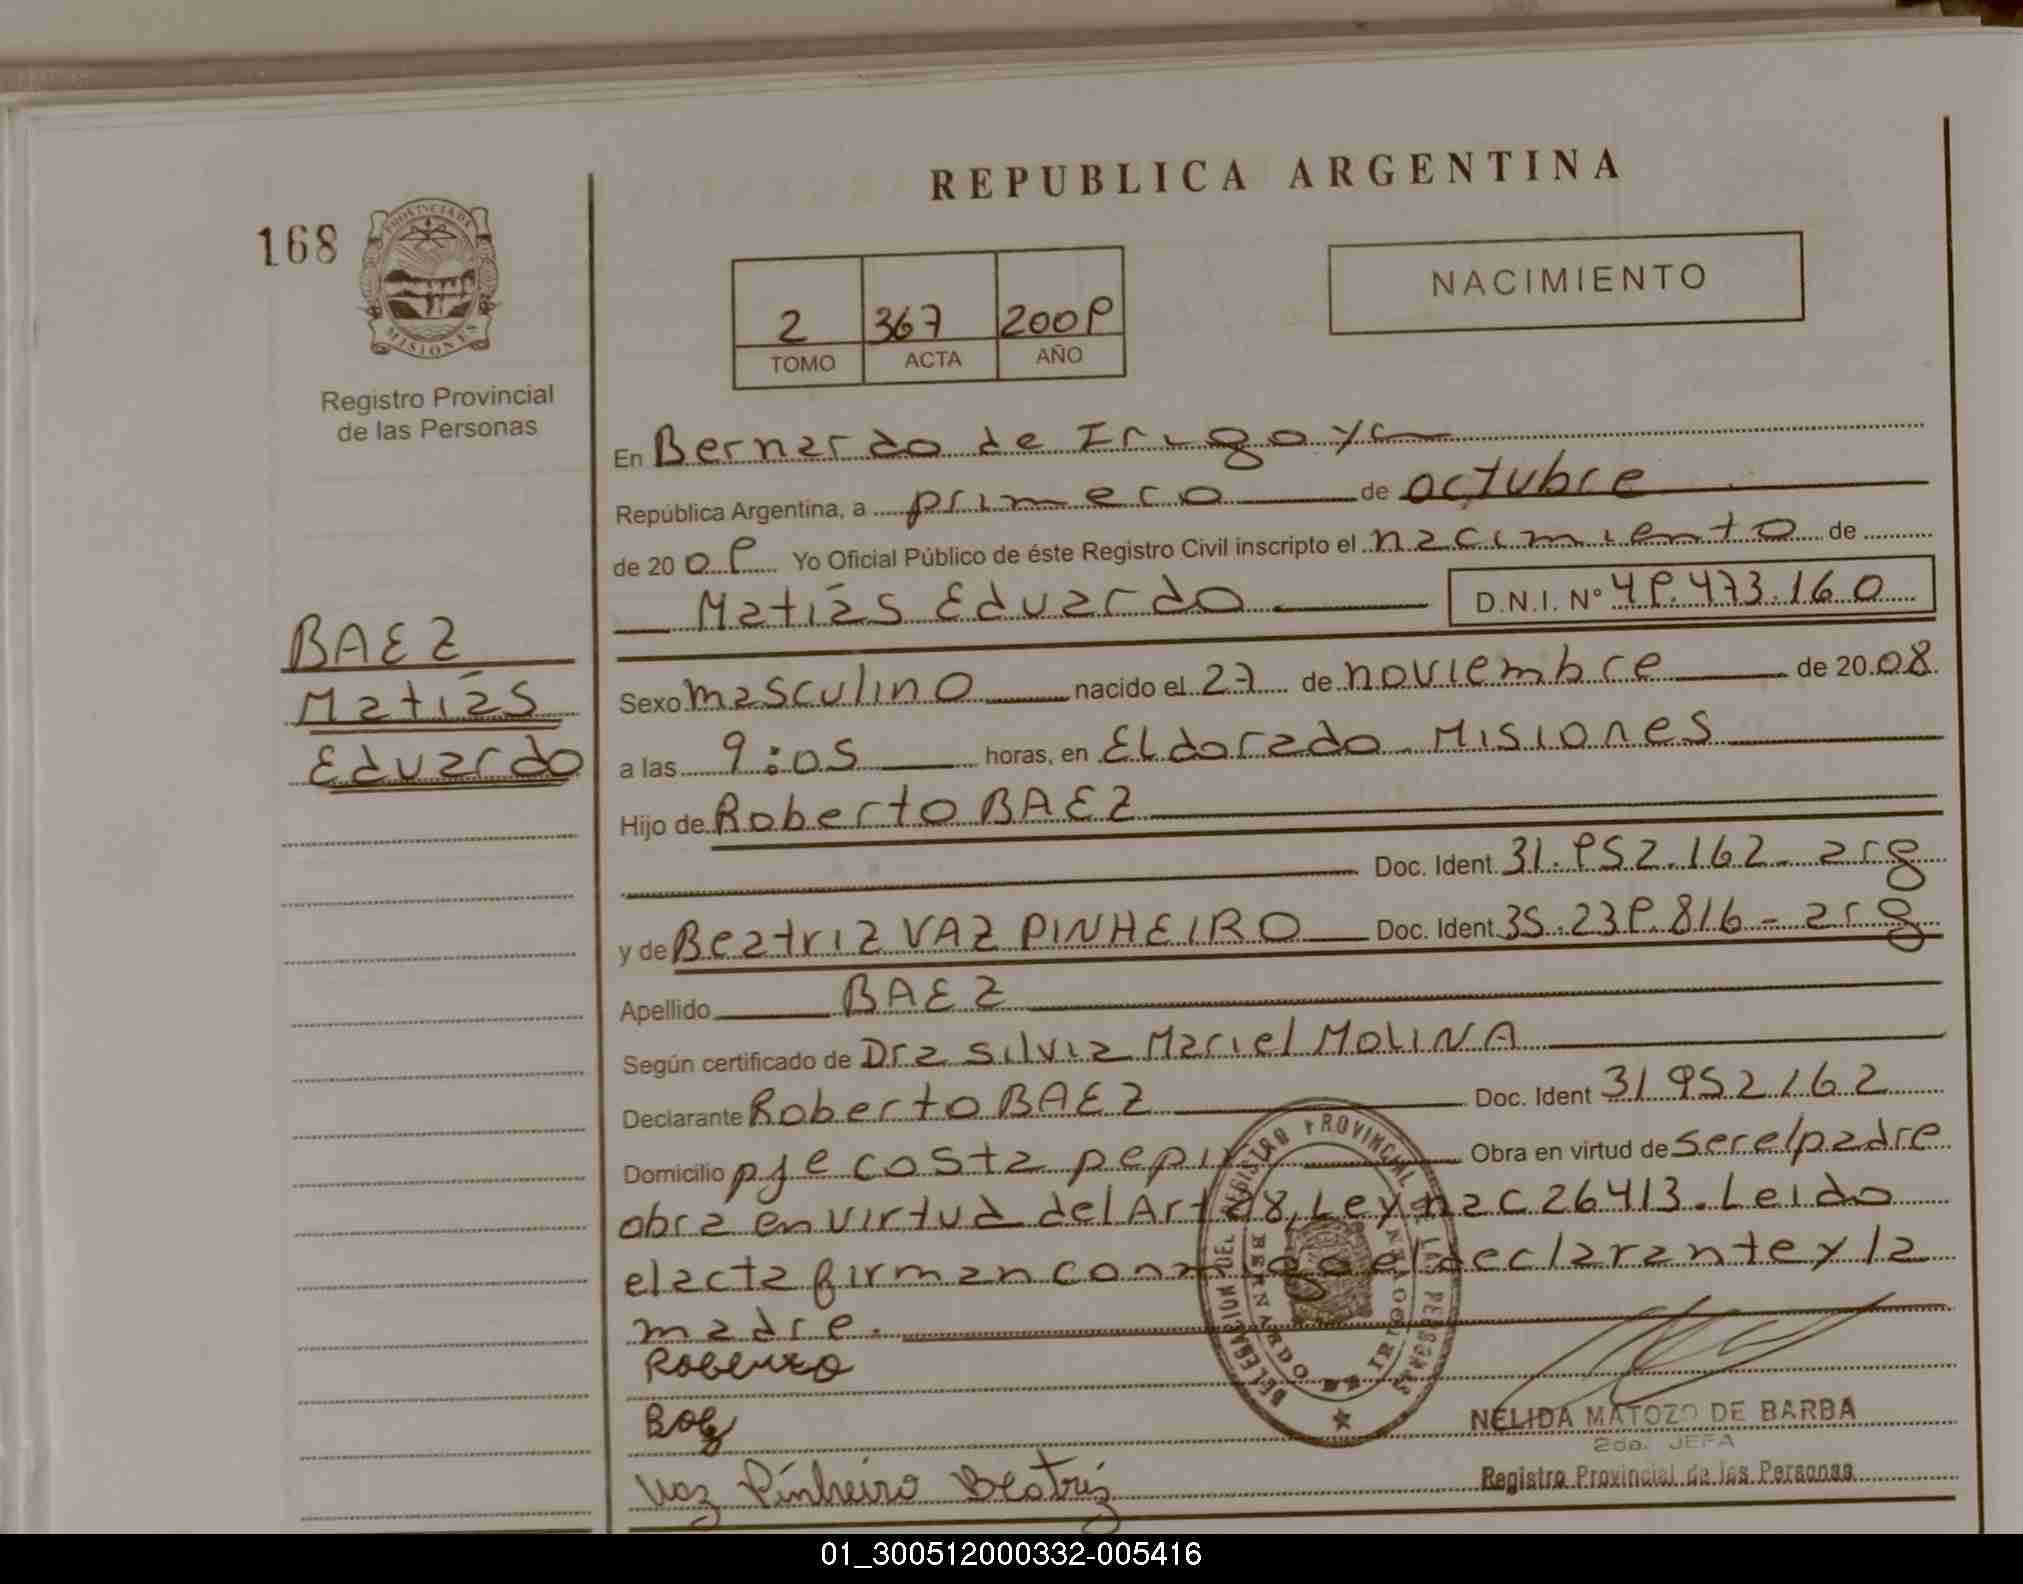 REPUBLICA ARGENTINA
168
PROVINCIA DE MISIONES
NACIMIENTO
2 367 2009
TOMO ACTA AÑO
Registro Provincial
de las Personas
En Bernardo de Irigoyen
República Argentina, a primero de octubre
de 2009 Yo Oficial Público de éste Registro Civil inscripto el nacimiento de
Matías Eduardo D.N.I. Nº 49.473.160
BAEZ
Matías
Eduardo
Sexo masculino nacido el 27 de noviembre de 2008
a las 9:05 horas, en Eldorado - Misiones
Hijo de Roberto BAEZ
Doc. Ident. 31.952.162 - arg
y de Beatriz VAZ PINHEIRO Doc. Ident. 35.239.816 - arg
Apellido BAEZ
Según certificado de Dra Silvia Mariel MOLINA
Declarante Roberto BAEZ Doc. Ident 31952162
Domicilio pje costa pepiri Obra en virtud de ser el padre
obra en virtud del Art 28, Ley nac 26413. Leido
el acta firman conmigo el declarante y la
madre.
DELEGACION DEL REGISTRO PROVINCIAL DE LAS PERSONAS
BERNARDO DE IRIGOYEN
Roberto
Baez
Vaz Pinheiro Beatriz
NELIDA MATOZO DE BARBA
2da. JEFA
Registro Provincial de las Personas
01_300512000332-005416